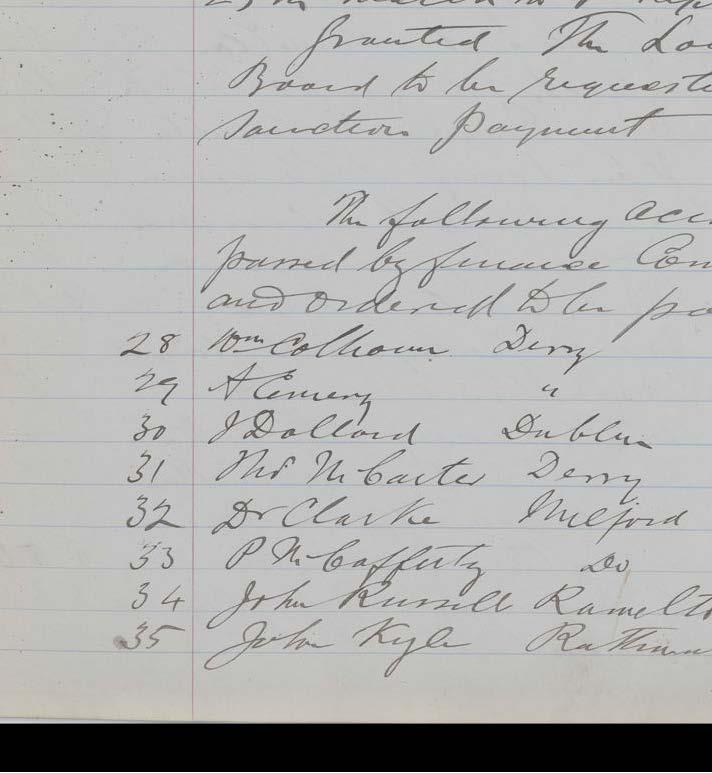 granted The Loc
Board to be requeste
sanction payment
The following acc
passed by finance Com
and ordered to be pa
28 Wm Colhoun Derry
29 A Emery "
30 J Dollard Dublin
31 McCarter Derry
32 Dr Clarke Milford
33 P McCafferty Do
34 John Russell Ramelto
35 John Kyle Rathm